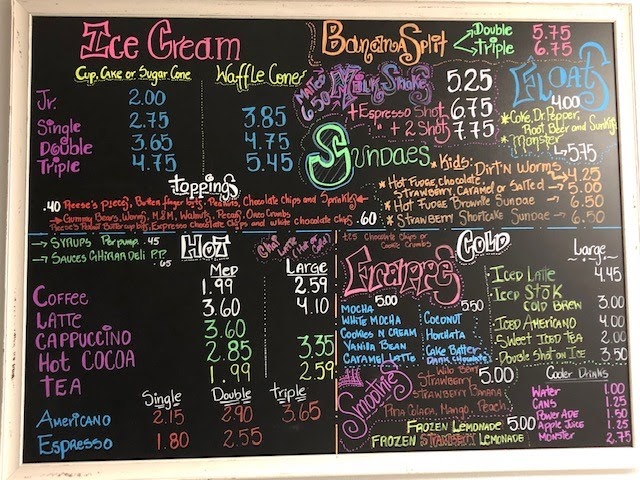 Ice Cream
Cup, Cake or Sugar Cone
Waffle Cones
Jr. 2.00
Single 2.75 3.85
Double 3.65 4.75
Triple 4.75 5.45
Toppings
.40 Reese's pieces, Butterfinger bits, Peanuts, Chocolate Chips and Sprinkles
Gummy Bears, Worms, M&M, Walnuts, Pecans, Oreo Crumbs
Reese's Peanut Butter cups, Espresso Chocolate Chips and white Chocolate Chips .60
Banana Split
Double 5.75
Triple 6.75
Malted 6.50
Milk Shake 5.25
+ Espresso Shot 6.75
" + 2 Shot 7.75
Floats
4.00
*Coke, Dr. Pepper,
Root Beer and Sunkist
*Monster
5.75
Sundaes
*Kids: Dirt'n Worms 4.25
*Hot Fudge, Chocolate
Strawberry, Caramel or Salted 5.00
*Hot Fudge Brownie Sundae 6.50
*Strawberry Shortcake Sundae 6.50
Syrups Per pump .45
Sauces Ghirardeli P.P. .65
Hot
Chai Latte
Med Large
Coffee 1.99 2.59
Latte 3.60 4.10
Cappuccino 3.60
Hot Cocoa 2.85 3.35
Tea 1.99 2.59
Single Double Triple
Americano 2.15 2.90 3.65
Espresso 1.80 2.55
Chocolate Chips or
Cookie Crumbs
Cold
Frappes
5.00 5.50
Mocha
White Mocha
Cookies N Cream
Vanilla Bean
Caramel Latte
Coconut
Horchata
Cake Batter
Dark Chocolate
Large
Iced Latte 4.45
Iced Stok
Cold Brew 3.00
Iced Americano 4.00
Sweet Iced Tea 2.00
Double Shot on Ice 3.50
Smoothies
Wild Berry 5.00
Strawberry
Strawberry Banana
Pina Colada, Mango, Peach
Frozen Lemonade 5.00
Frozen Strawberry Lemonade
Cooler Drinks
Water 1.00
Cans 1.25
Powerade 1.50
Apple Juice 1.25
Monster 2.75